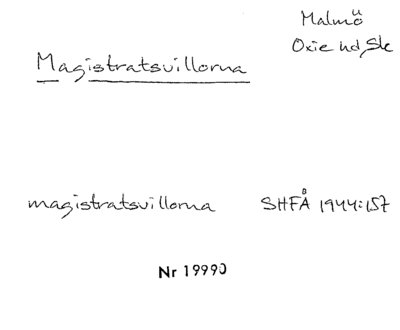 Malmö
Oxie hd, Sk
Magistratsvillorna
magistratsvillorna SHFÅ 1944:157
Nr 19990